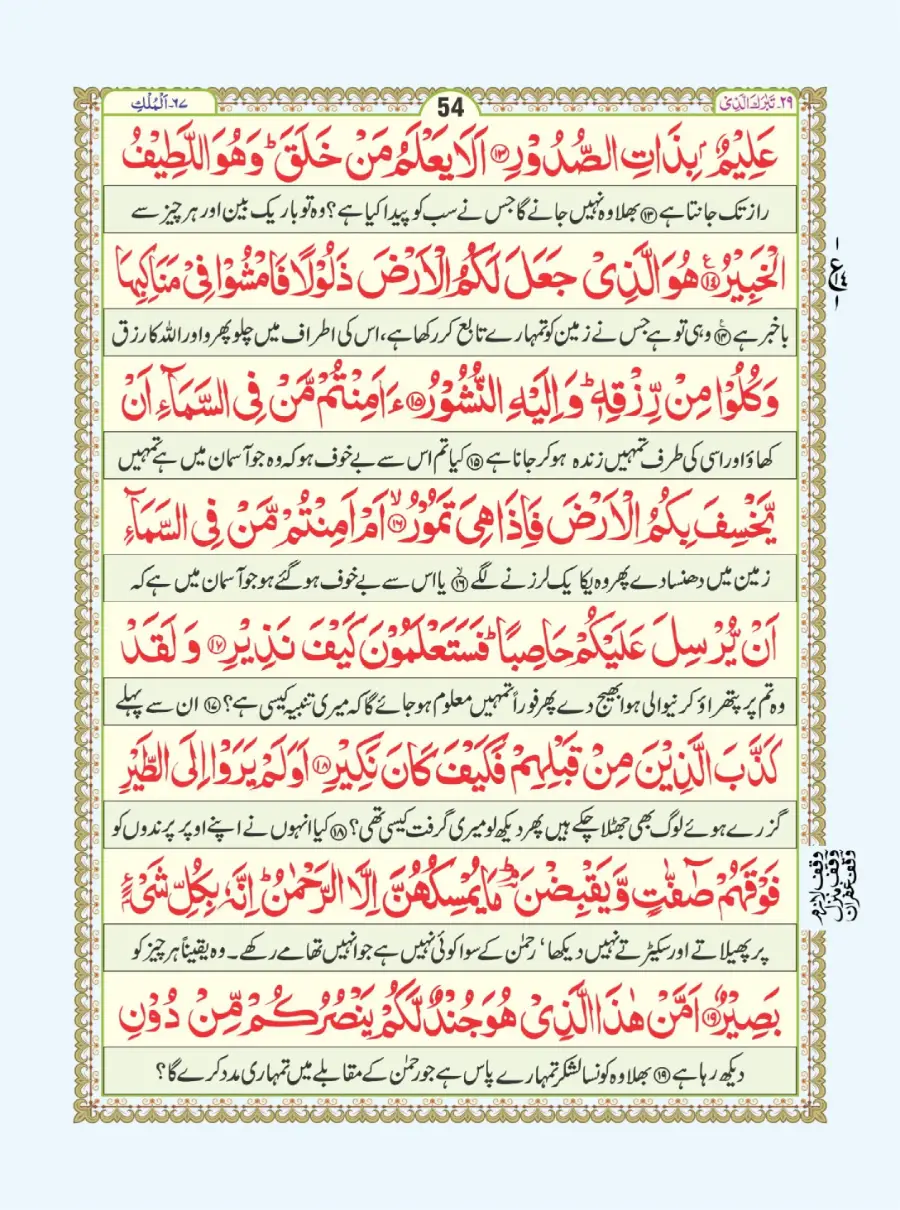 ٢٩۔ تَبٰرَكَ الَّذِیْ
54
٦٧۔ اَلْمُلْكِ
عَلِیْمٌۢ بِذَاتِ الصُّدُوْرِ ﴿١٣﴾ اَلَا یَعْلَمُ مَنْ خَلَقَ ؕ وَهُوَ اللَّطِیْفُ
راز تک جانتا ہے ﴿١٣﴾ بھلا وہ نہیں جانے گا جس نے سب کو پیدا کیا ہے؟ وہ تو باریک بین اور ہر چیز سے
الْخَبِیْرُ ﴿١٤﴾ هُوَ الَّذِیْ جَعَلَ لَكُمُ الْاَرْضَ ذَلُوْلًا فَامْشُوْا فِیْ مَنَاكِبِهَا
باخبر ہے ﴿١٤﴾ وہی تو ہے جس نے زمین کو تمہارے تابع کر رکھا ہے، اس کی اطراف میں چلو پھرو اور اللہ کا رزق
وَكُلُوْا مِنْ رِّزْقِهٖ ؕ وَ اِلَیْهِ النُّشُوْرُ ﴿١٥﴾ ءَاَمِنْتُمْ مَّنْ فِی السَّمَآءِ اَنْ
کھاؤ اور اسی کی طرف تمہیں زندہ ہو کر جانا ہے ﴿١٥﴾ کیا تم اس سے بے خوف ہو کہ وہ جو آسمان میں ہے تمہیں
یَّخْسِفَ بِكُمُ الْاَرْضَ فَاِذَا هِیَ تَمُوْرُ ﴿١٦﴾ۙ اَمْ اَمِنْتُمْ مَّنْ فِی السَّمَآءِ
زمین میں دھنسا دے پھر وہ یکایک لرزنے لگے ﴿١٦﴾ۙ یا اس سے بے خوف ہو گئے ہو جو آسمان میں ہے کہ
اَنْ یُّرْسِلَ عَلَیْكُمْ حَاصِبًا ؕ فَسَتَعْلَمُوْنَ كَیْفَ نَذِیْرِ ﴿١٧﴾ وَ لَقَدْ
وہ تم پر پتھراؤ کرنیوالی ہوا بھیج دے پھر فوراً تمہیں معلوم ہو جائے گا کہ میری تنبیہ کیسی ہے؟ ﴿١٧﴾ ان سے پہلے
كَذَّبَ الَّذِیْنَ مِنْ قَبْلِهِمْ فَكَیْفَ كَانَ نَكِیْرِ ﴿١٨﴾ اَوَلَمْ یَرَوْا اِلَی الطَّیْرِ
گزرے ہوئے لوگ بھی جھٹلا چکے ہیں پھر دیکھ لو میری گرفت کیسی تھی؟ ﴿١٨﴾ کیا انہوں نے اپنے اوپر پرندوں کو
فَوْقَهُمْ صٰٓفّٰتٍ وَّیَقْبِضْنَ ؔؕ مَا یُمْسِكُهُنَّ اِلَّا الرَّحْمٰنُ ؕ اِنَّهٗ بِكُلِّ شَیْءٍۭ
پر پھیلاتے اور سکیڑتے نہیں دیکھا، رحمٰن کے سوا کوئی نہیں ہے جو انہیں تھامے رکھے۔ وہ یقیناً ہر چیز کو
بَصِیْرٌ ﴿١٩﴾ اَمَّنْ هٰذَا الَّذِیْ هُوَ جُنْدٌ لَّكُمْ یَنْصُرُكُمْ مِّنْ دُوْنِ
دیکھ رہا ہے ﴿١٩﴾ بھلا وہ کونسا لشکر تمہارے پاس ہے جو رحمٰن کے مقابلے میں تمہاری مدد کرے گا؟
ع
١٤
وقف لازم
وقف منزل
وقف غفران